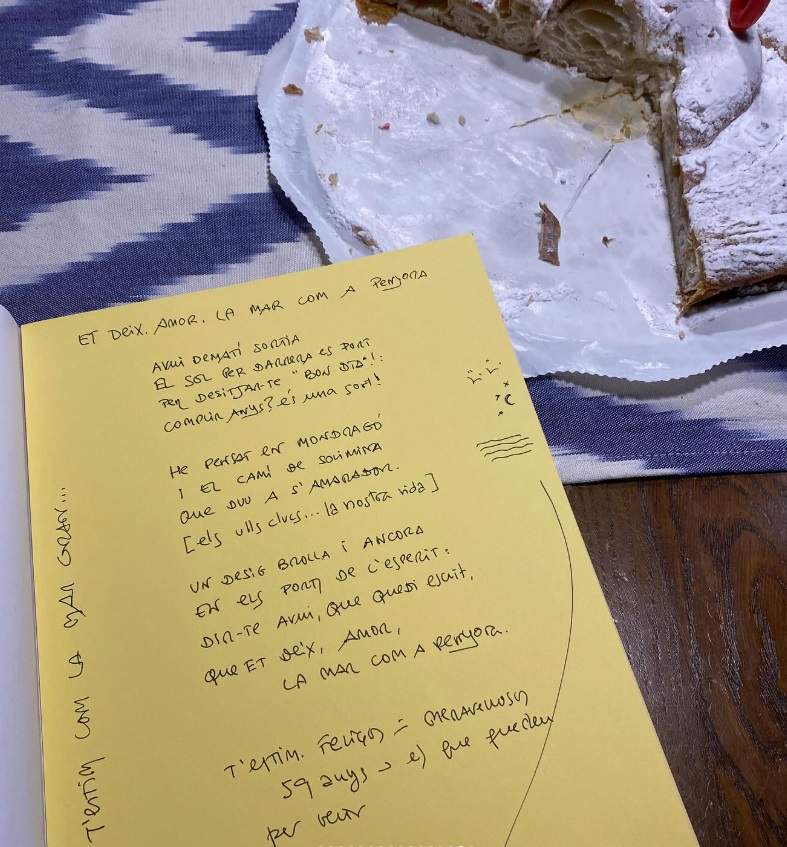 ET DEIX, AMOR, LA MAR COM A PENYORA
AVUI DEMATÍ SORTIA
EL SOL PER DARRERA ES PORT
PER DESITJAR-TE "BON DIA"!:
COMPLIR ANYS? és una sort!
HE PENSAT EN MONDRAGÓ
I EL CAMÍ DE SOLIMINA
QUE DUU A S'AMARADOR.
[els ulls clucs... la nostra vida]
UN DESIG BROLLA I ANCORA
EN els PORTS DE L'ESPERIT:
DIR-TE AVUI, QUE QUEDI escrit,
que ET Deix, AMOR,
LA MAR COM A Penyora.
T'estim. Feliços i meravellosos
59 anys → els que queden
per venir
T'ESTIM COM LA MAR GRAN...